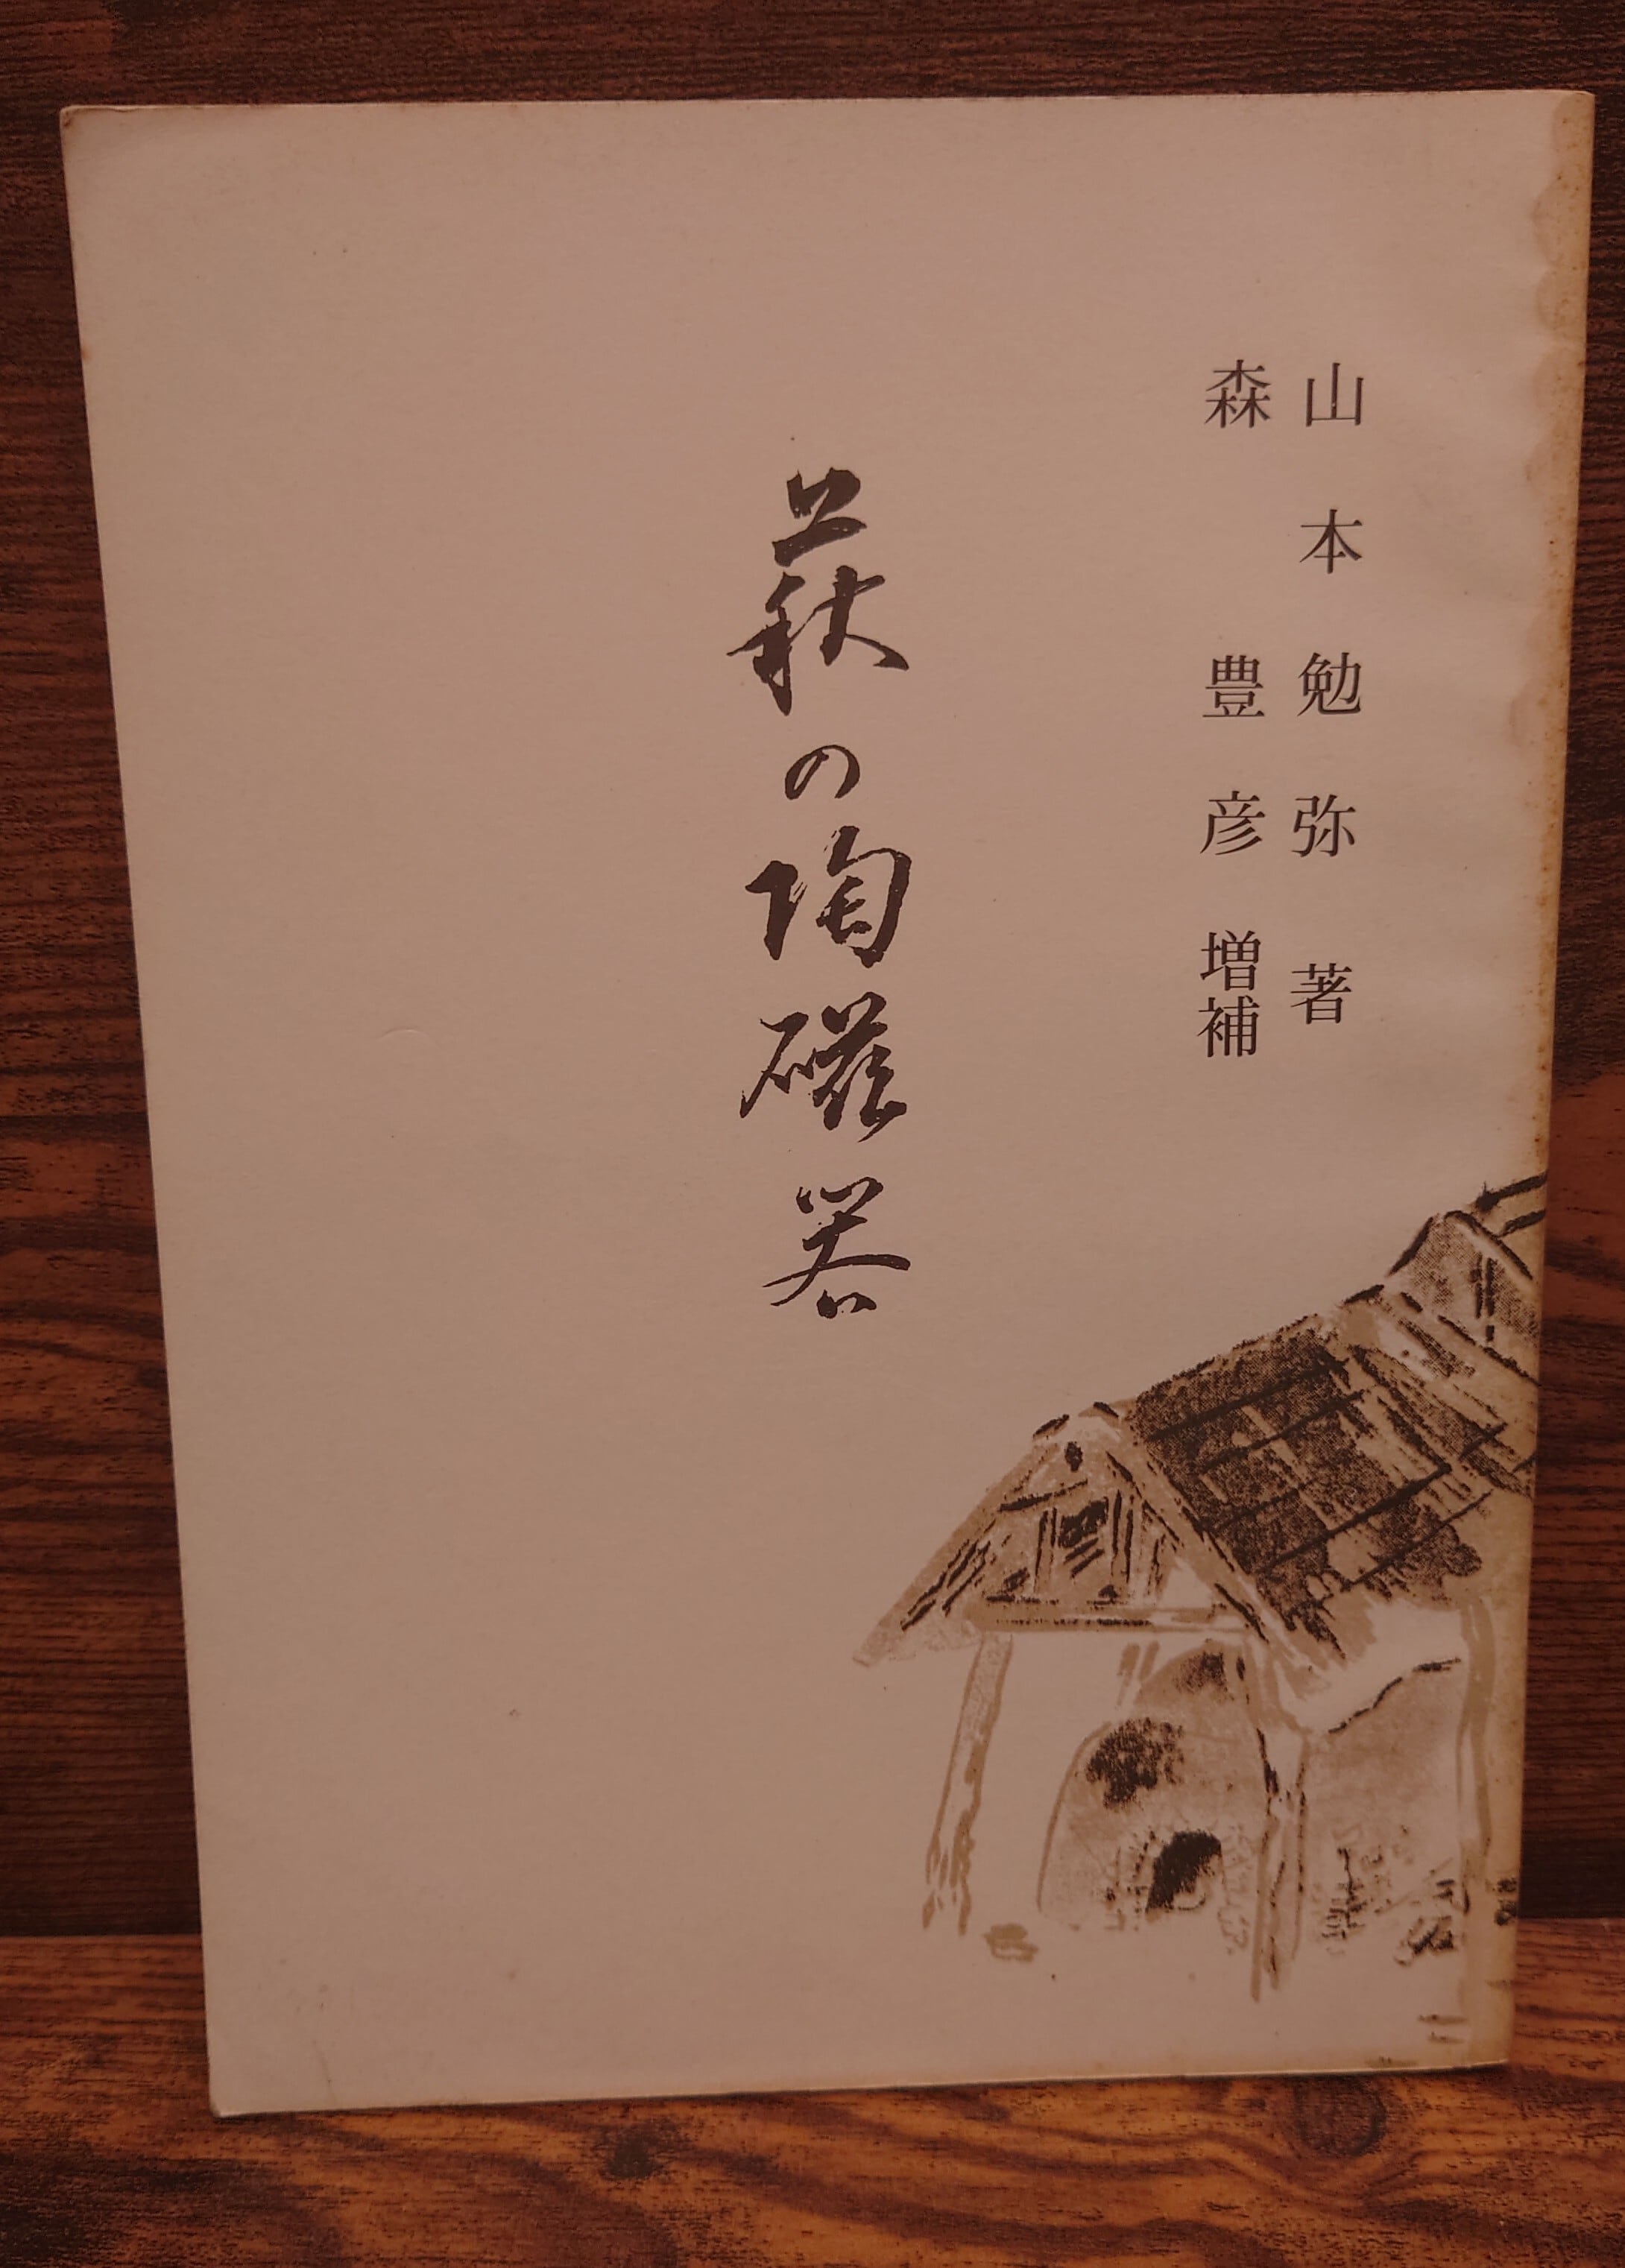 山本勉弥 著
森 豊彦 増補
萩の陶磁器